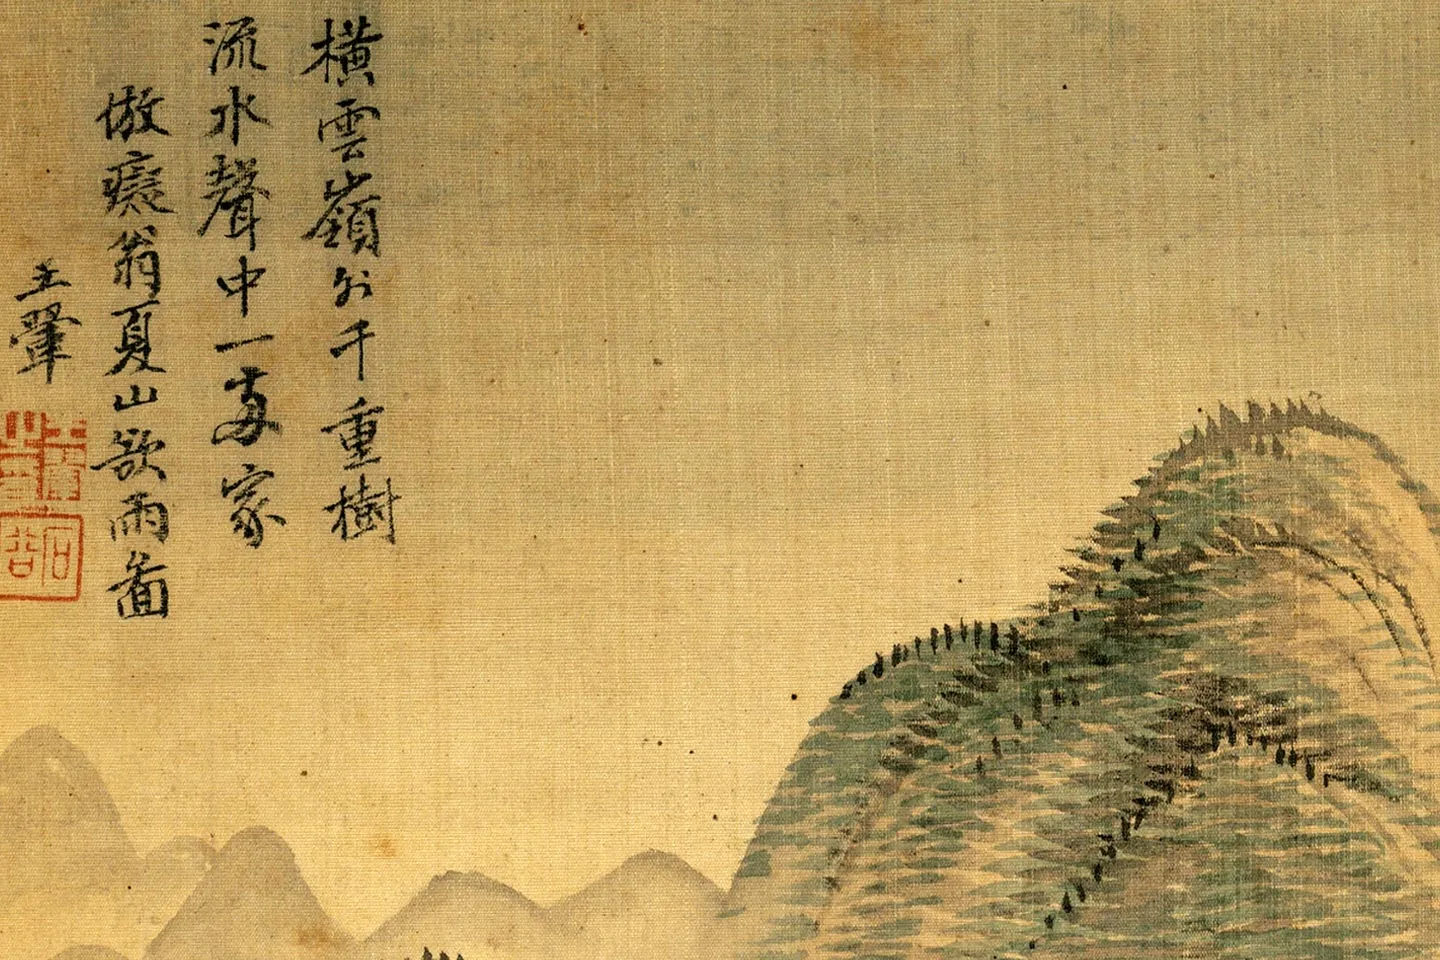 橫雲嶺外千重樹
流水聲中一兩家
倣癡翁夏山欲雨圖
王翬
石谷